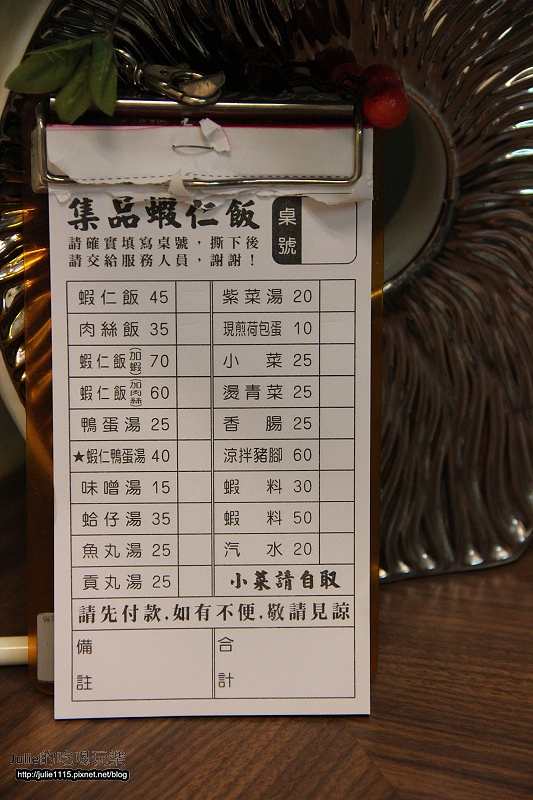 集品蝦仁飯
桌號
請確實填寫桌號，撕下後
請交給服務人員，謝謝！
蝦仁飯 45
紫菜湯 20
肉絲飯 35
現煎荷包蛋 10
蝦仁飯(加蝦) 70
小菜 25
蝦仁飯(加肉絲) 60
燙青菜 25
鴨蛋湯 25
香腸 25
★蝦仁鴨蛋湯 40
涼拌豬腳 60
味噌湯 15
蝦料 30
蛤仔湯 35
蝦料 50
魚丸湯 25
汽水 20
貢丸湯 25
小菜請自取
請先付款.如有不便.敬請見諒
備註
合計
Julie的吃喝玩樂
http://julie1115.pixnet.net/blog